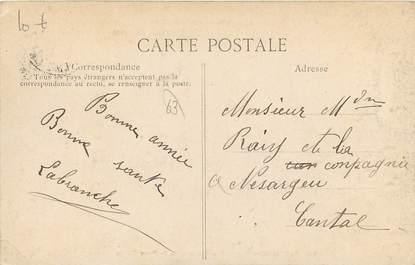 10 t
CARTE POSTALE
Correspondance
Tous les pays étrangers n'acceptent pas la
correspondance au recto, se renseigner à la poste.
63
Bonne année
Bonne santé
Labranche
Adresse
Monsieur Mdn
Raisy et la
compagnie
a Nesargeu
Cantal